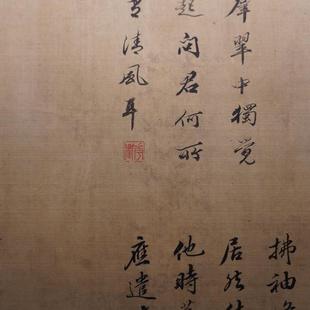 屏翠中獨覺
起問君何所
清風耳
拂袖
居然
他時
應遣